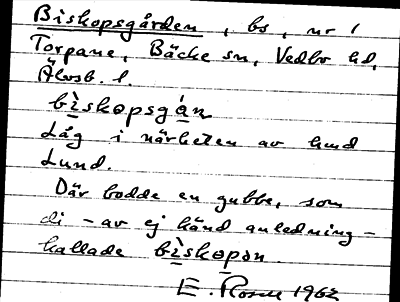 Biskopsgården, bs, nr 1
Torpane, Bäcke sn, Vedbo hd,
Älvsb. l.
bìskopsgán
Låg i närheten av hmd
Lund.
Där bodde en gubbe, som
di - av ej känd anledning -
kallade bìskopən.
E. Rosen 1962